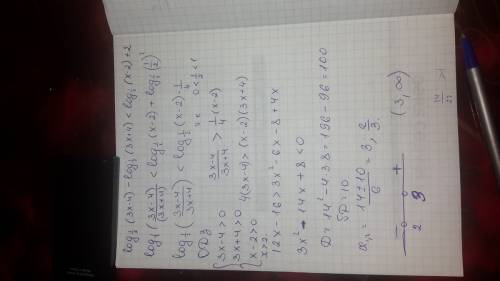 log½(3x-4) - log½(3x+4) < log½(x-2)+2
log½((3x-4)/(3x+4)) < log½(x-2) + log½(½)²
log½((3x-4)/(3x+4)) < log½(x-2)·¼
ОДЗ т.к. 0<½<1
{3x-4>0 (3x-4)/(3x+4) > ¼(x-2)
3x+4>0 4(3x-4)>(x-2)(3x+4)
x-2>0
x>2. 12x-16>3x²-6x-8+4x
3x²-14x+8<0
D=14²-4·3·8=196-96=100
√D=10
x₁,₂=(14±10)/6=3; 2/3.
- + (3,∞)
2 3